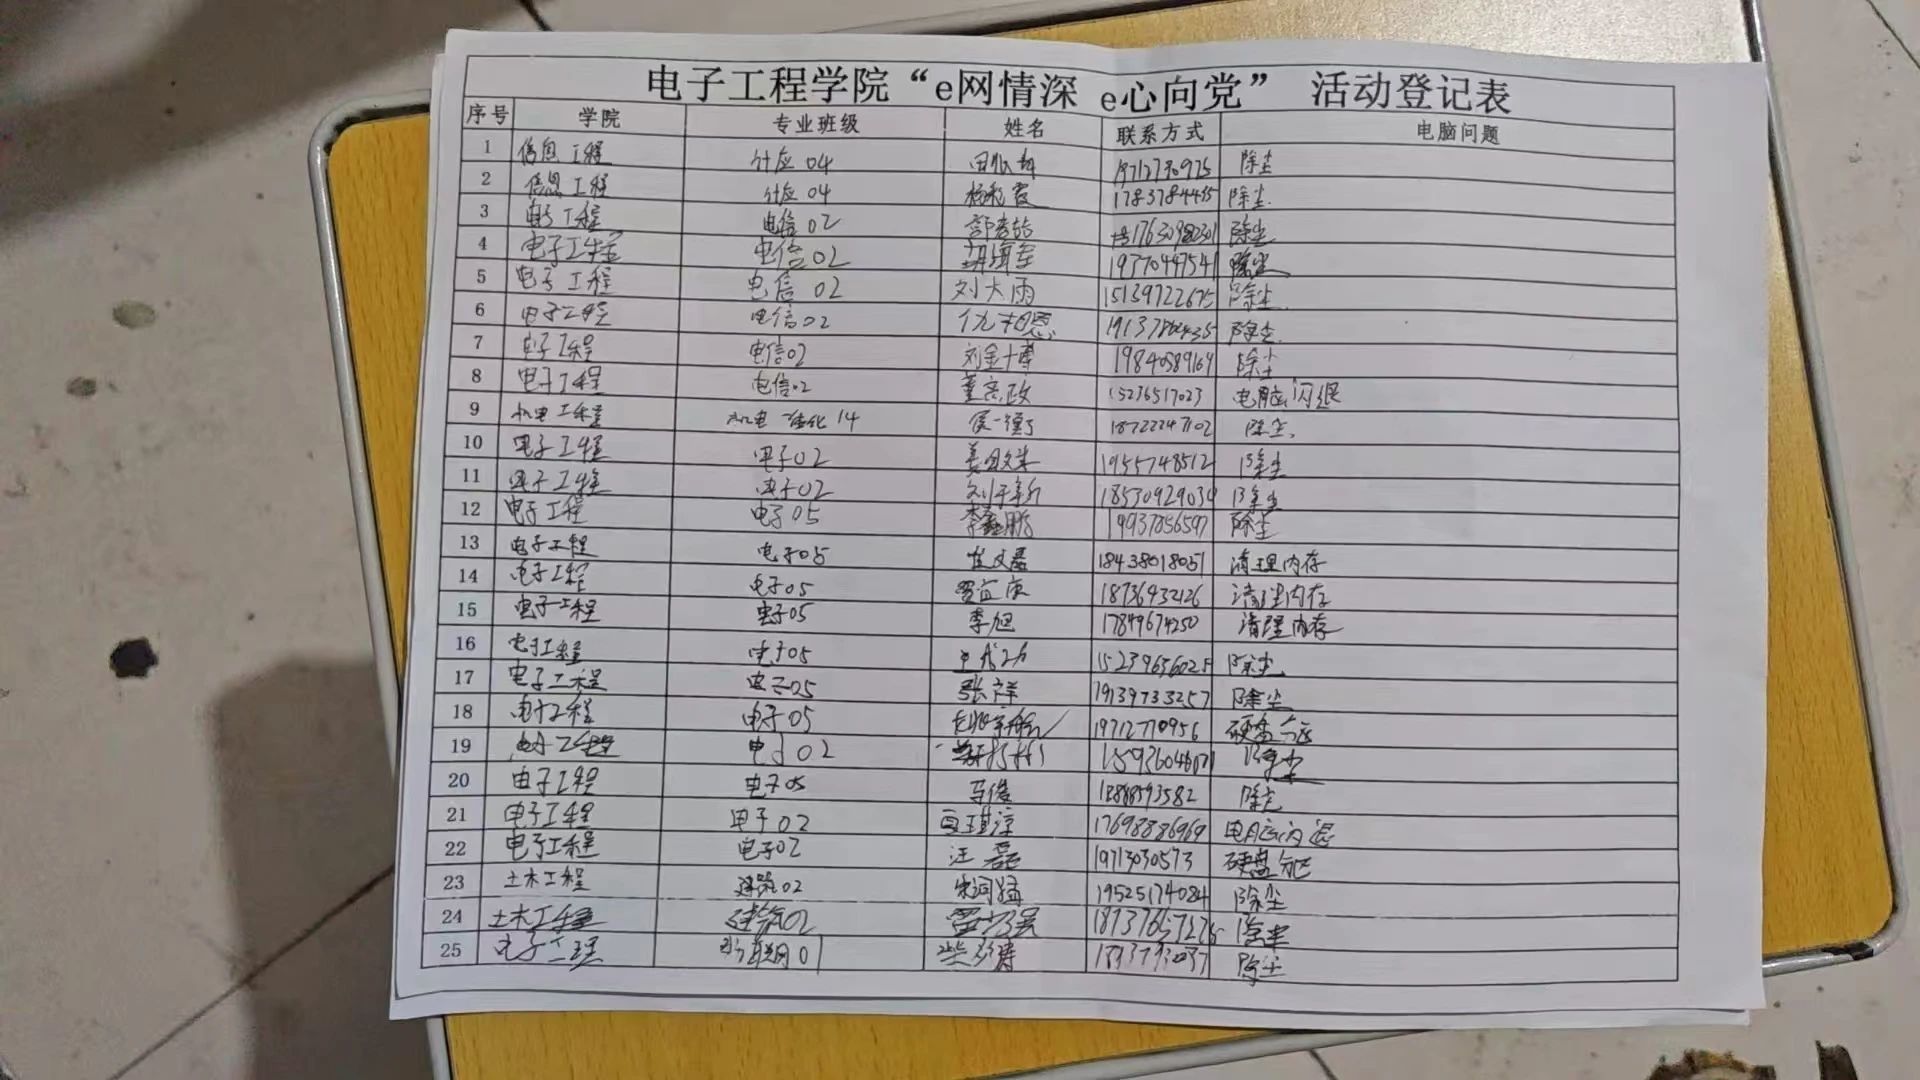 电子工程学院“e网情深 e心向党” 活动登记表
序号 学院 专业班级 姓名 联系方式 电脑问题
1 信息工程 计应04 19712730975 除尘
2 信息工程 计应04 杨彩霞 17837844435 除尘.
3 电子工程 电信02 17630980301 除尘
4 电子工程 电信02 19370447541 除尘
5 电子工程 电信02 刘大雨 15139722675 除尘.
6 电子工程 电信02 除尘.
7 电子工程 电信02 刘金博 19840589169 除尘
8 电子工程 电信02 董亮政 15236517023 电脑闪退
9 机电工程 机电一体化14 18722247102 除尘.
10 电子工程 电子02 19557748512 除尘
11 电子工程 电子02 18530929039 除尘
12 电子工程 电子05 李鑫鹏 19937856597 除尘
13 电子工程 电子05 18438018051 清理内存
14 电子工程 电子05 18736932126 清理内存
15 电子工程 电子05 李旭 17849674250 清理内存
16 电子工程 电子05 15239656025 除尘
17 电子工程 电子05 张祥 19139733257 除尘
18 电子工程 电子05 19712770956 硬盘分区
19 电子工程 电子02 除尘
20 电子工程 电子05 马俊 除尘
21 电子工程 电子02 17698886969 电脑闪退
22 电子工程 电子02 汪磊 19713030573 硬盘分区
23 土木工程 建筑02 19525174084 除尘
24 土木工程 建筑02 18737657275 除尘
25 电子工程 物联网01 除尘